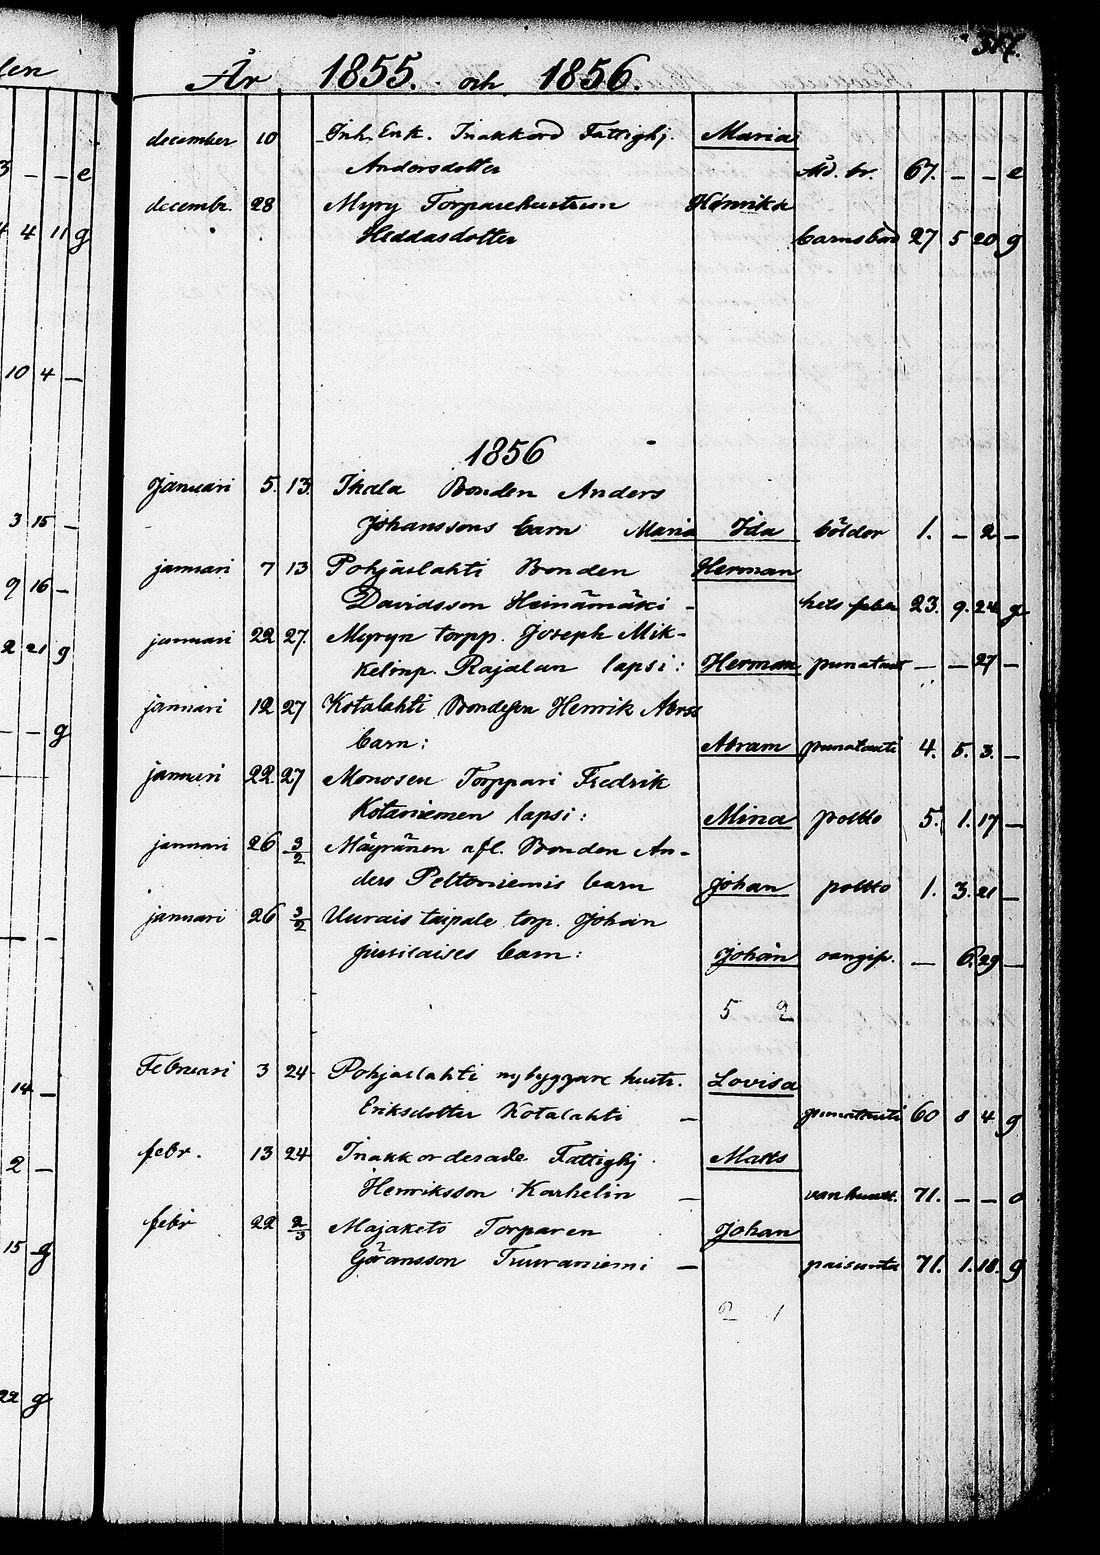 len
317.
År 1855. och 1856.
3 — — e
december 10 Inh. Enk. Inakkord Fattighj. Maria
Andersdotter Åld. br. 67. — — e
4 4 11 g
decembr. 28 Myry Torparehustrun Henrika
Heddasdotter barnsbörd 27 5 20 g
10 4 —
1856
Januari 5. 13. Ihala Bonden Anders
3 15 —
Johanssons barn Maria Ida bölder 1. — 2 —
januari 7 13 Pohjaslahti Bonden Herman
9 16 —
Davidsson Heinämäki — hets feber 23. 9. 24 g
januari 22 27. Myryn torpp. Joseph Mik-
2 21 g
kelinp. Rajalan lapsi: Herman punataut — — 27 —
januari 12 27 Kotalahti Bondes Henrik Abrs
— — g
barn: Abram punatauti 4. 5. 3. —
januari 22. 27 Monosen Torppari Fredrik
Kotaniemen lapsi: Mina poltto 5. 1. 17 —
januari 26 3/2 Mäyränen afl. Bonden An-
ders Peltoniemis barn Johan poltto 1. 3. 21 —
januari 26 3/2 Uuraistaipale torp. Johan
Jussilaises barn: Johan oangip. — 6. 29 —
5 2
Februari 3 24 Pohjaslahti nybyggare hustr. Lovisa
14 —
Eriksdotter Kotalahti — punatauti 60 8 4 g
febr. 13 24 Inakkorderade Fattighj. Matts
2 —
Henriksson Karhelin — vanhuut. 71. — — o
febr 22 2/3 Majaketo Torparen Johan
15 g
Göransson Tuuraniemi — paisunta 71. 1. 18. g
2 1
22 g